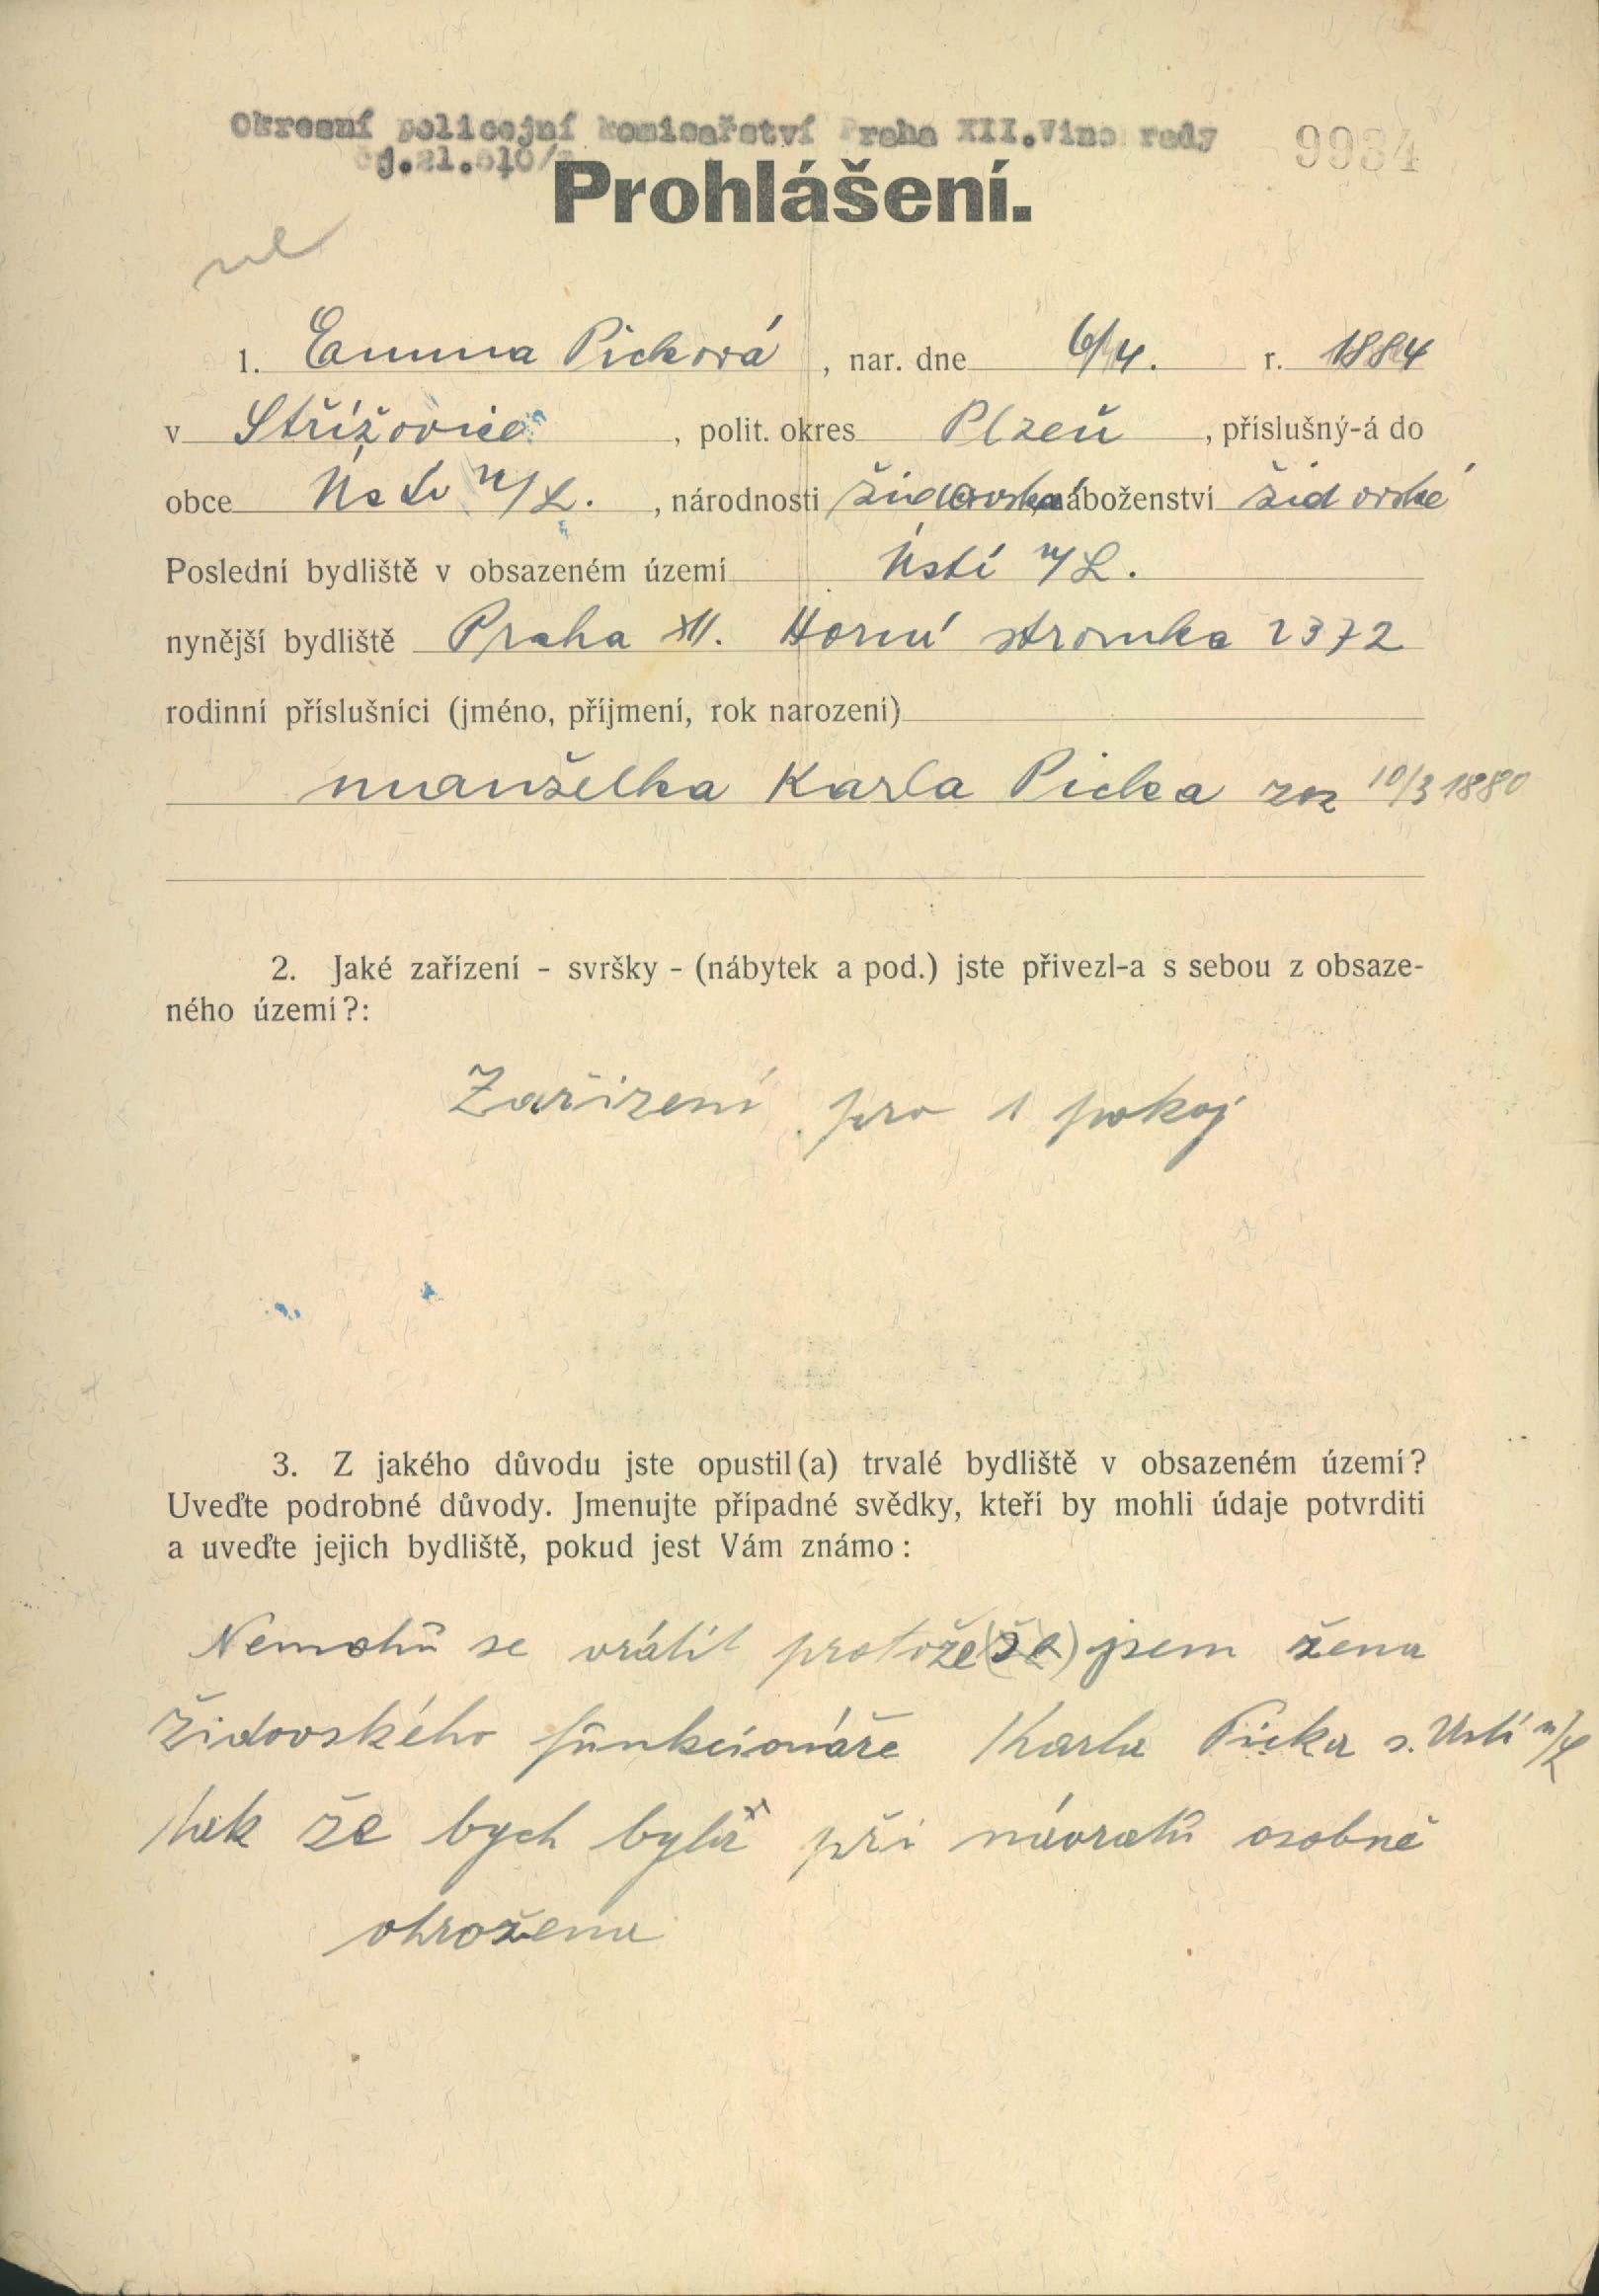 Okresní policejní komisařství Praha XII. Vinohrady
9934
Prohlášení.
1. Emma Picková, nar. dne 6/4. r. 1884
v Střížovice, polit. okres Plzeň, příslušný-á do
obce Ústí n/L., národnosti židovské náboženství židovské
Poslední bydliště v obsazeném území Ústí n/L.
nynější bydliště Praha XII. Horní stromka 2372
rodinní příslušníci (jméno, příjmení, rok narození)
manželka Karla Picka roz 10/3 1880
2. Jaké zařízení - svršky - (nábytek a pod.) jste přivezl-a s sebou z obsaze-
ného území?:
Zařízení pro 1 pokoj
3. Z jakého důvodu jste opustil(a) trvalé bydliště v obsazeném území?
Uveďte podrobné důvody. Jmenujte případné svědky, kteří by mohli údaje potvrditi
a uveďte jejich bydliště, pokud jest Vám známo:
Nemohu se vrátit protože (že) jsem žena
židovského funkcionáře Karla Picka z. Ustí n/L
tak že bych byla při návratu osobně
ohrožena